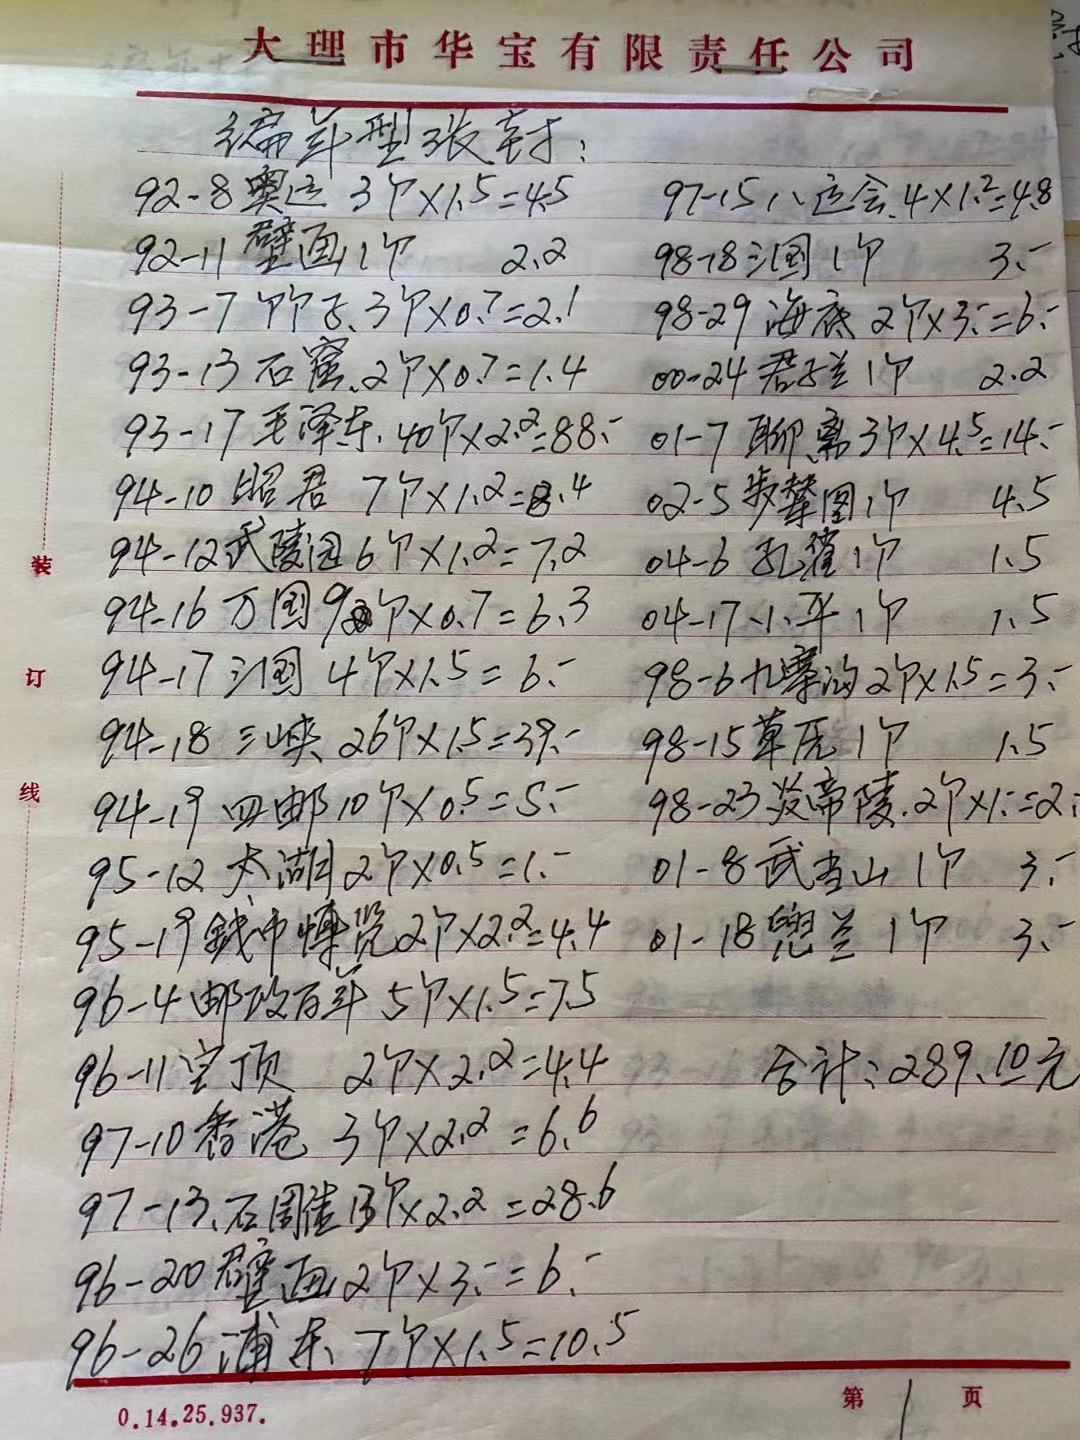 大理市华宝有限责任公司
编年型张封:
92-8奥运 3个×1.5=4.5
92-11壁画1个 2.2
93-7竹子、3个×0.7=2.1
93-13石窟、2个×0.7=1.4
93-17毛泽东、40个×2.2=88.-
94-10昭君 7个×1.2=8.4
94-12武陵园6个×1.2=7.2
94-16万国9个×0.7=6.3
94-17三国 4个×1.5=6.-
94-18三峡 26个×1.5=39.-
94-19四邮10个×0.5=5.-
95-12太湖2个×0.5=1.-
95-19钱币博览2个×2.2=4.4
96-4邮政百年 5个×1.5=7.5
96-11宝顶 2个×2.2=4.4
97-10香港 3个×2.2=6.6
97-13、石周佳13个×2.2=28.6
96-20壁画2个×3.-=6.-
96-26浦东、7个×1.5=10.5
97-15八运会、4×1.2=4.8
98-18三国1个 3.-
98-29海底2个×3.-=6.-
00-24君子兰1个 2.2
01-7聊斋3个×4.5=14.-
02-5步辇图1个 4.5
04-6孔雀1个 1.5
04-17小平1个 1.5
98-6九寨沟2个×1.5=3.-
98-15草原1个 1.5
98-23炎帝陵、2个×1.-=2.-
01-8武当山1个 3.-
01-18兜兰1个 3.-
合计:289.10元
装
订
线
0.14.25.937.
第1页